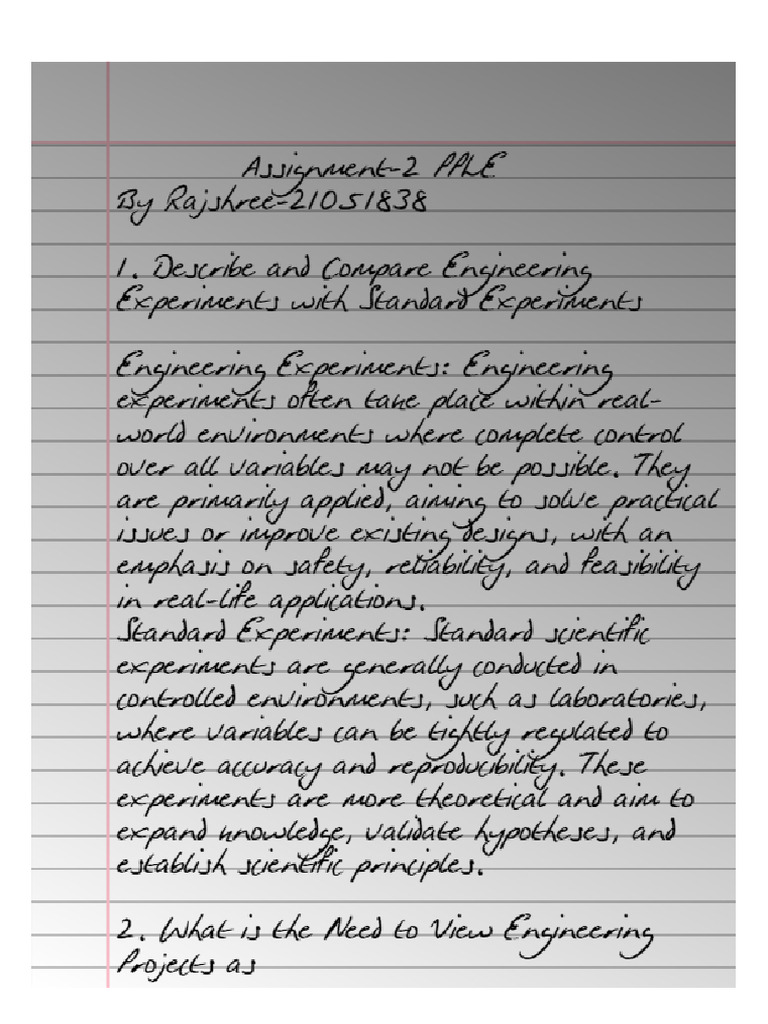 Assignment-2 PPLE
By Rajshree-21051838
1. Describe and Compare Engineering
Experiments with Standard Experiments
Engineering Experiments: Engineering
experiments often take place within real-
world environments where complete control
over all variables may not be possible. They
are primarily applied, aiming to solve practical
issues or improve existing designs, with an
emphasis on safety, reliability, and feasibility
in real-life applications.
Standard Experiments: Standard scientific
experiments are generally conducted in
controlled environments, such as laboratories,
where variables can be tightly regulated to
achieve accuracy and reproducibility. These
experiments are more theoretical and aim to
expand knowledge, validate hypotheses, and
establish scientific principles.
2. What is the Need to View Engineering
Projects as